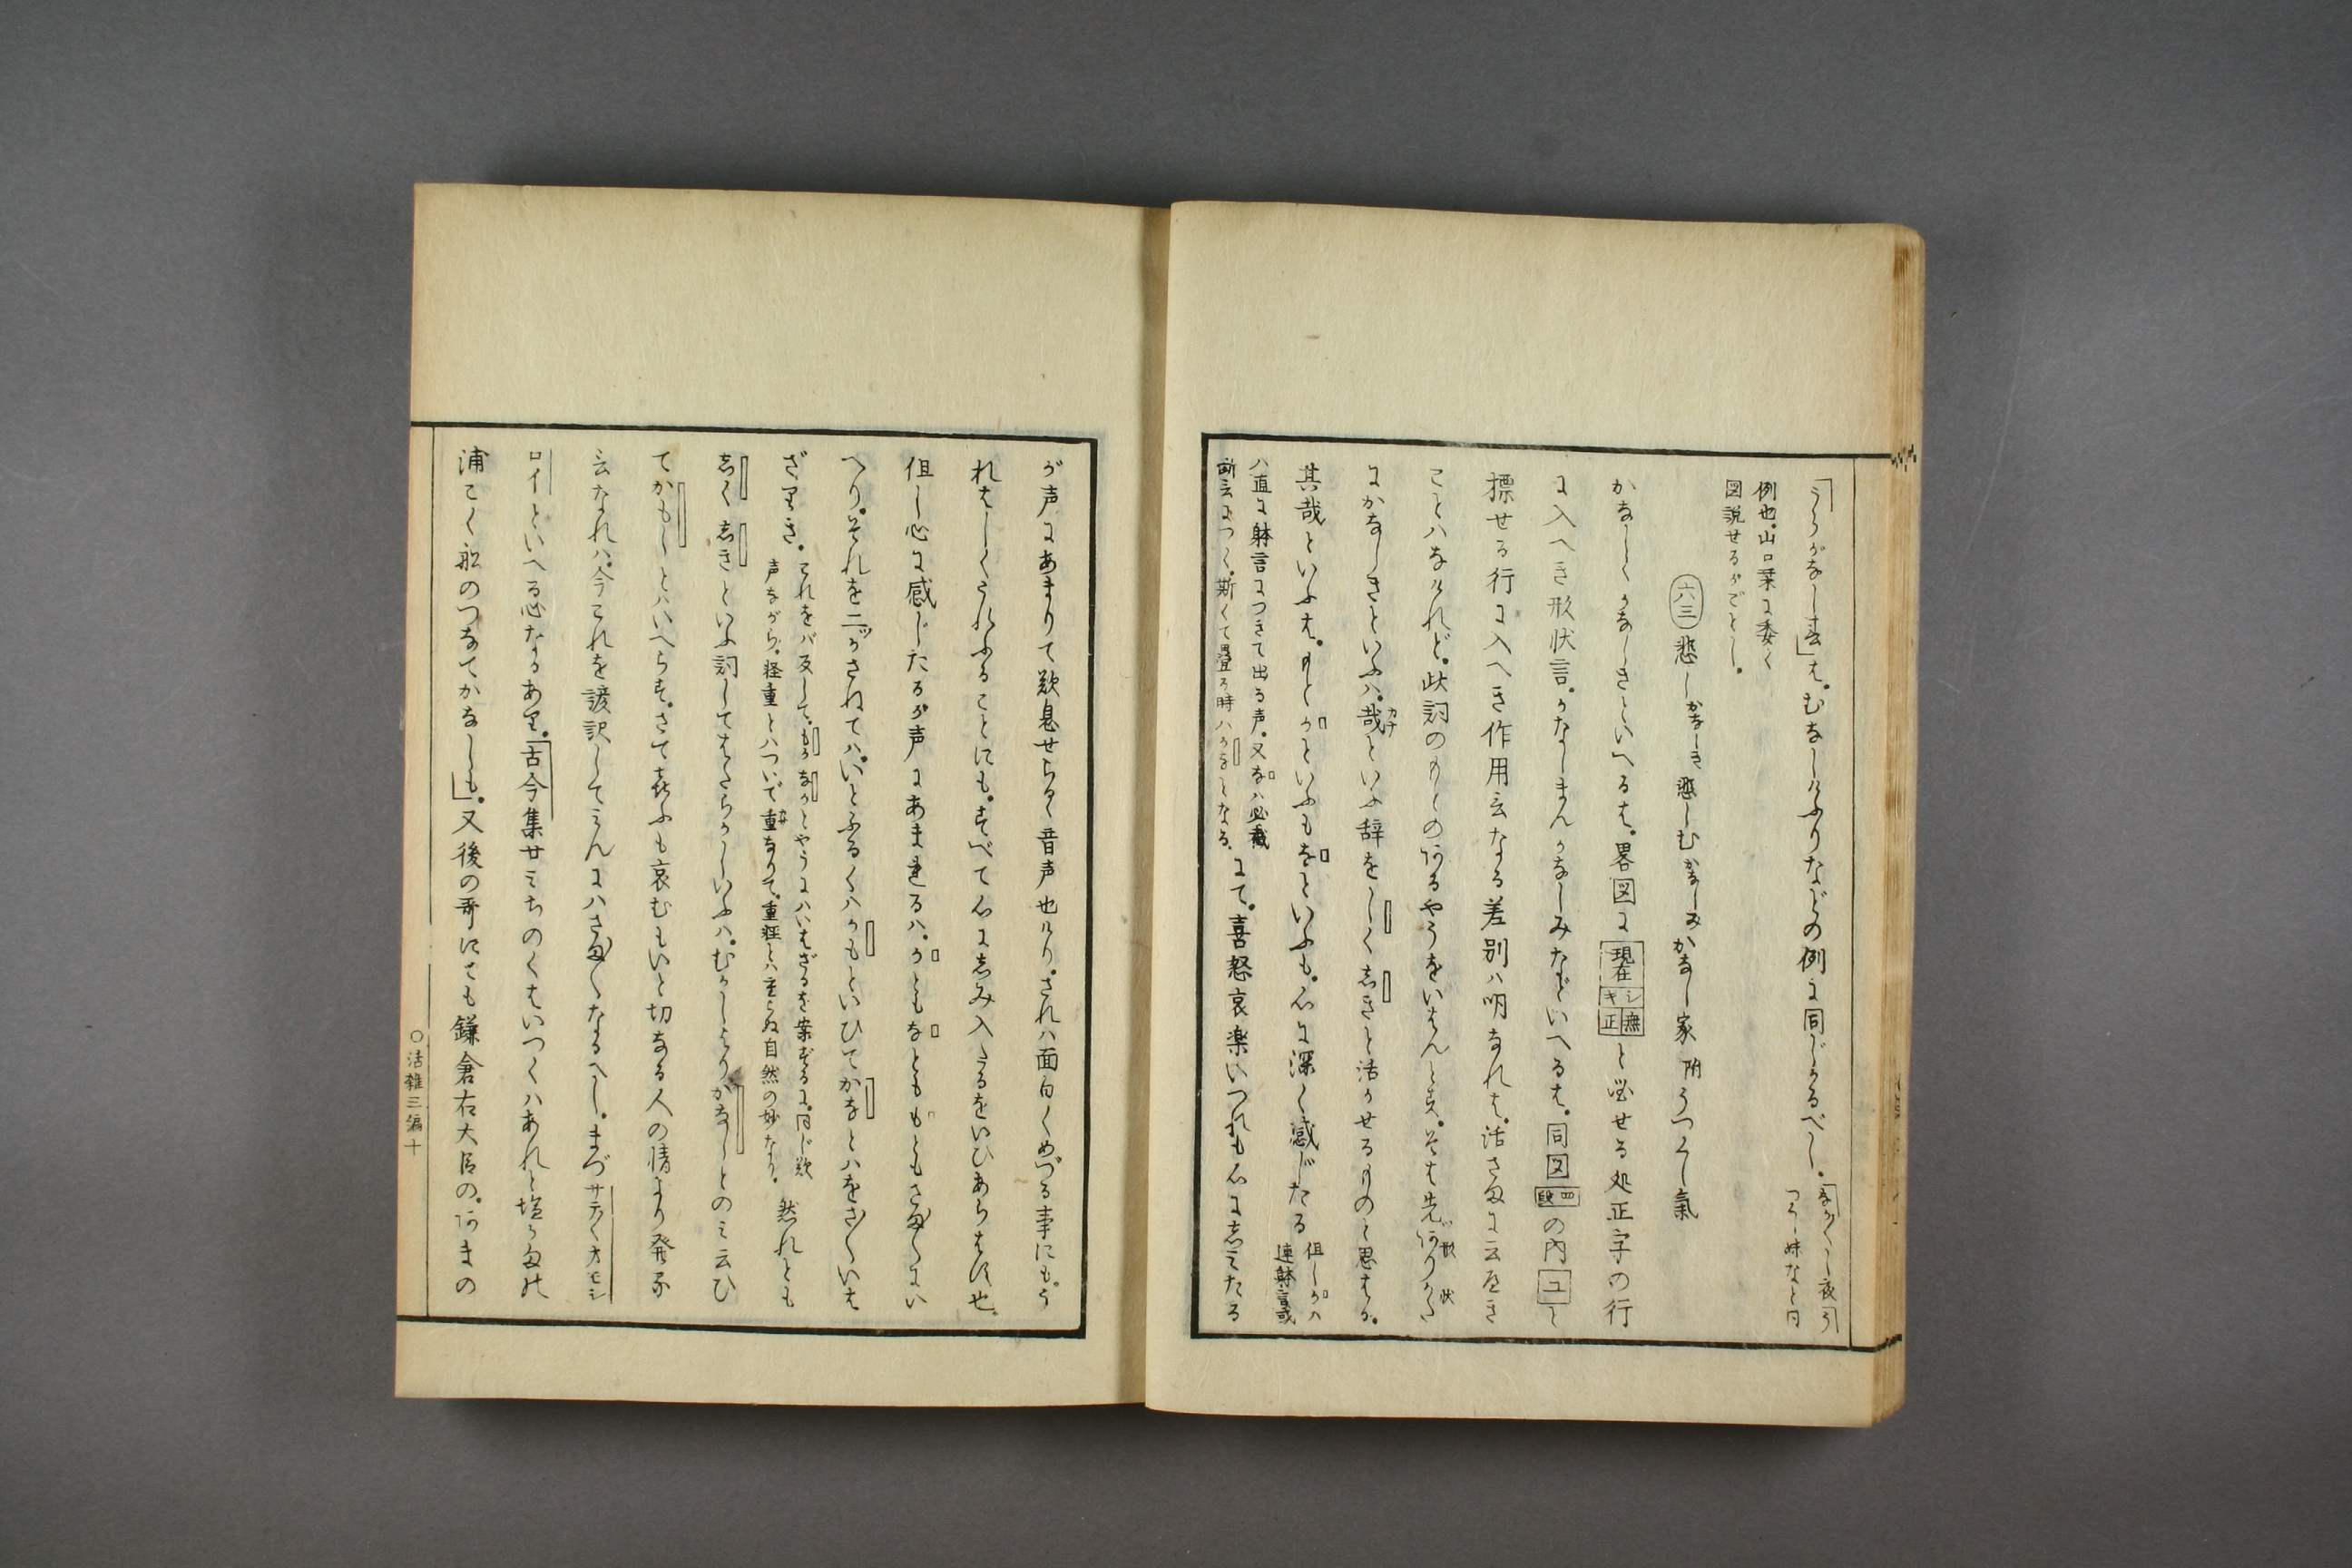 「うらがなし春」は。むなしけふりなどの例に同じかるべし。「ながくし夜「う
つくし妹など同
例也。山口栞に委く
図説せるがごとし。
六三 悲しかなしき 悲しむかなしみ かなし家 附 うつくし氣
かなしくかなしきといへるは。畧図に現在シキ無正と出せる処正字の行
に入へき形状言。かなしまんかなしみなどいへるは。同図四段の内ユと
標せる行に入へき作用言なる差別ハ明なれは。活さまに云べき
ことハなけれど。此詞のもとのあるやうをいはんとす。そは先ありかた
にかなしきといふハ。哉カナといふ辞をしくしきと活かせるものと思はる。
其哉といふは。もとかといふもなといふも。心に深く感じたる 但しかハ
連躰言或
ハ直に躰言につきて出る声。又なハ必截
断言につく。斯くて畳る時ハかなとなる。 にて。喜怒哀楽いつれも心にしみたる
が声にあまりて歎息せらるゝ音声也けり。されハ面白くめづる事にも。う
れはしくうれふることにも。すべて心にしみ入たるをいひあらはす也。
但し心に感じたるが声にあまれるハ。かともなとももともさま〴〵にい
へり。それを二ツかさねてハ。いとふるくハかもといひてかなとハをさ〳〵いは
ざりき。 これをバ反して。もかなかとやうにハいはざるを案ずるに。同じ歎
声ながら。軽重とハついで重なりて。重軽とハ重らぬ自然の妙なり。 然れとも
しくしきといふ詞してはたらかしいふハ。むかしよりかなしとのミ云ひ
てかもしとハいへらず。さて喜ふも哀むもいと切なる人の情より発る
言なれハ。今これを譯訳してミんにハさま〴〵なるへし。まづサテ〳〵オモシ
ロイといへる心なるあり。「古今集廿ミちのくはいつくハあれと塩かまの
浦こく舩のつなてかなしも」。又後の哥にても鎌倉右大臣の。あまの
〇活雑三編十